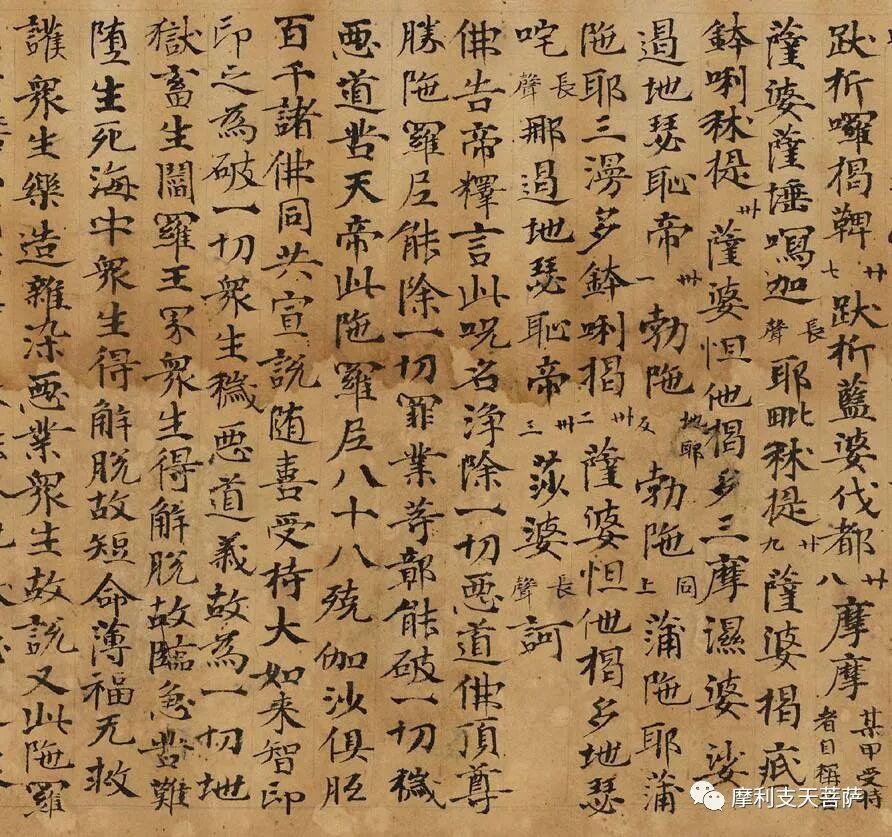 跋折囉揭鞞廿七跋折藍婆伐都廿八摩摩某甲受持者自稱
薩婆薩埵寫迦長聲耶毗秫提廿九薩婆揭底
鉢唎秫提卅薩婆怛他揭多三摩濕婆娑
遏地瑟恥帝卅一勃陁地耶反勃陁同上蒲陁耶蒲
陁耶三漫多鉢唎揭卅二薩婆怛他揭多地瑟
咤長聲那遏地瑟恥帝卅三莎婆長聲訶
佛告帝釋言此呪名淨除一切惡道佛頂尊
勝陁羅尼能除一切罪業等鄣能破一切穢
惡道苦天帝此陁羅尼八十八殑伽沙俱胝
百千諸佛同共宣說随喜受持大如来智印
印之為破一切眾生穢惡道義故為一切地
獄畜生閻羅王界眾生得解脫故臨急苦難
墮生死海中眾生得解脫故短命薄福无救
護眾生樂造雜染惡業眾生故說又此陁羅
摩利支天菩萨